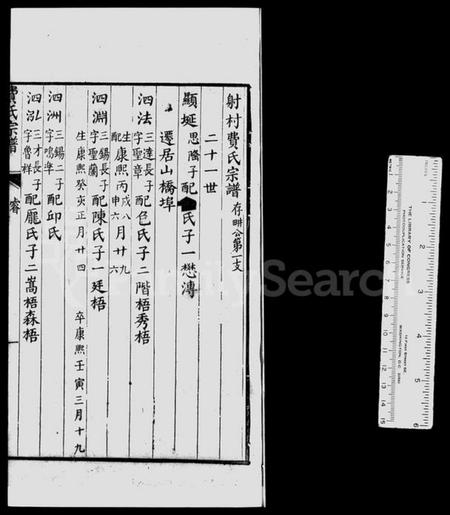 射村費氏宗譜 存畊公第一支
二十一世
顯埏 思隆子 配 氏子一懋溥
遷居山橋埠
泗法 三達長子 字聖章 配包氏子二階梧秀梧
生康熙丙戌八月廿九
配 申六月廿六
泗淵 三錫長子 字聖蘭 配陳氏子一廷梧
生康熙癸亥正月廿四 卒康熙壬寅三月十九
泗洲 三錫二子 字鳴準 配邱氏
泗泓 三才長子 字魯祥 配龐氏子二嵩梧森梧
費氏宗譜
FamilySearch
THE LIBRARY OF CONGRESS
PHOTODUPLICATION SERVICE
WASHINGTON, D.C. 20540
1 2 3 4 5 6
1 2 3 4 5 6 7 8 9 10 11 12 13 14 15